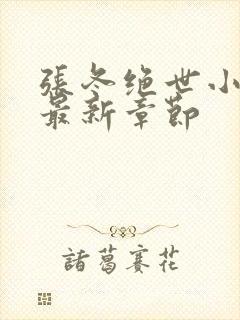 張冬绝世小
最新章節
諸葛賽花